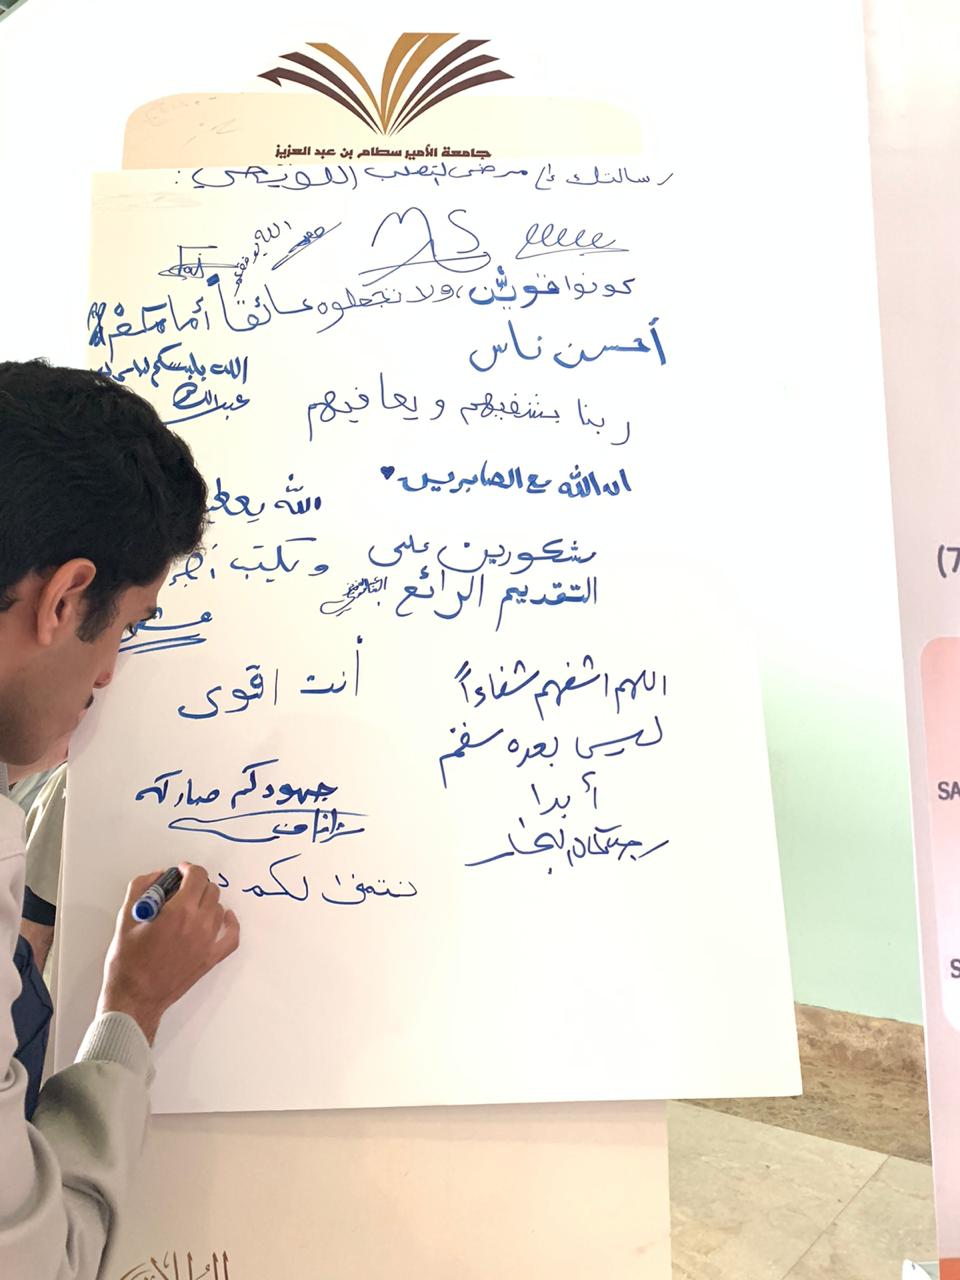 جامعة الأمير سطام بن عبد العزيز
رسالتك إلى مرضى التصلب اللويحي:
MS
الله يوفقهم
كونوا قويّن، ولا تجعلوه عائقاً أمامكم
أحسن ناس
الله يلبسكم
عبدالله
ربنا يشفيهم و يعافيهم
ان الله مع الصابرين ♥
الله
مشكورين على
التقديم الرائع
و يكتب
أنت اقوى
اللهم اشفهم شفاءاً
ليس بعده سقم
أبدا
جهودكم مباركه
نتمنى لكم
(7
SA
S